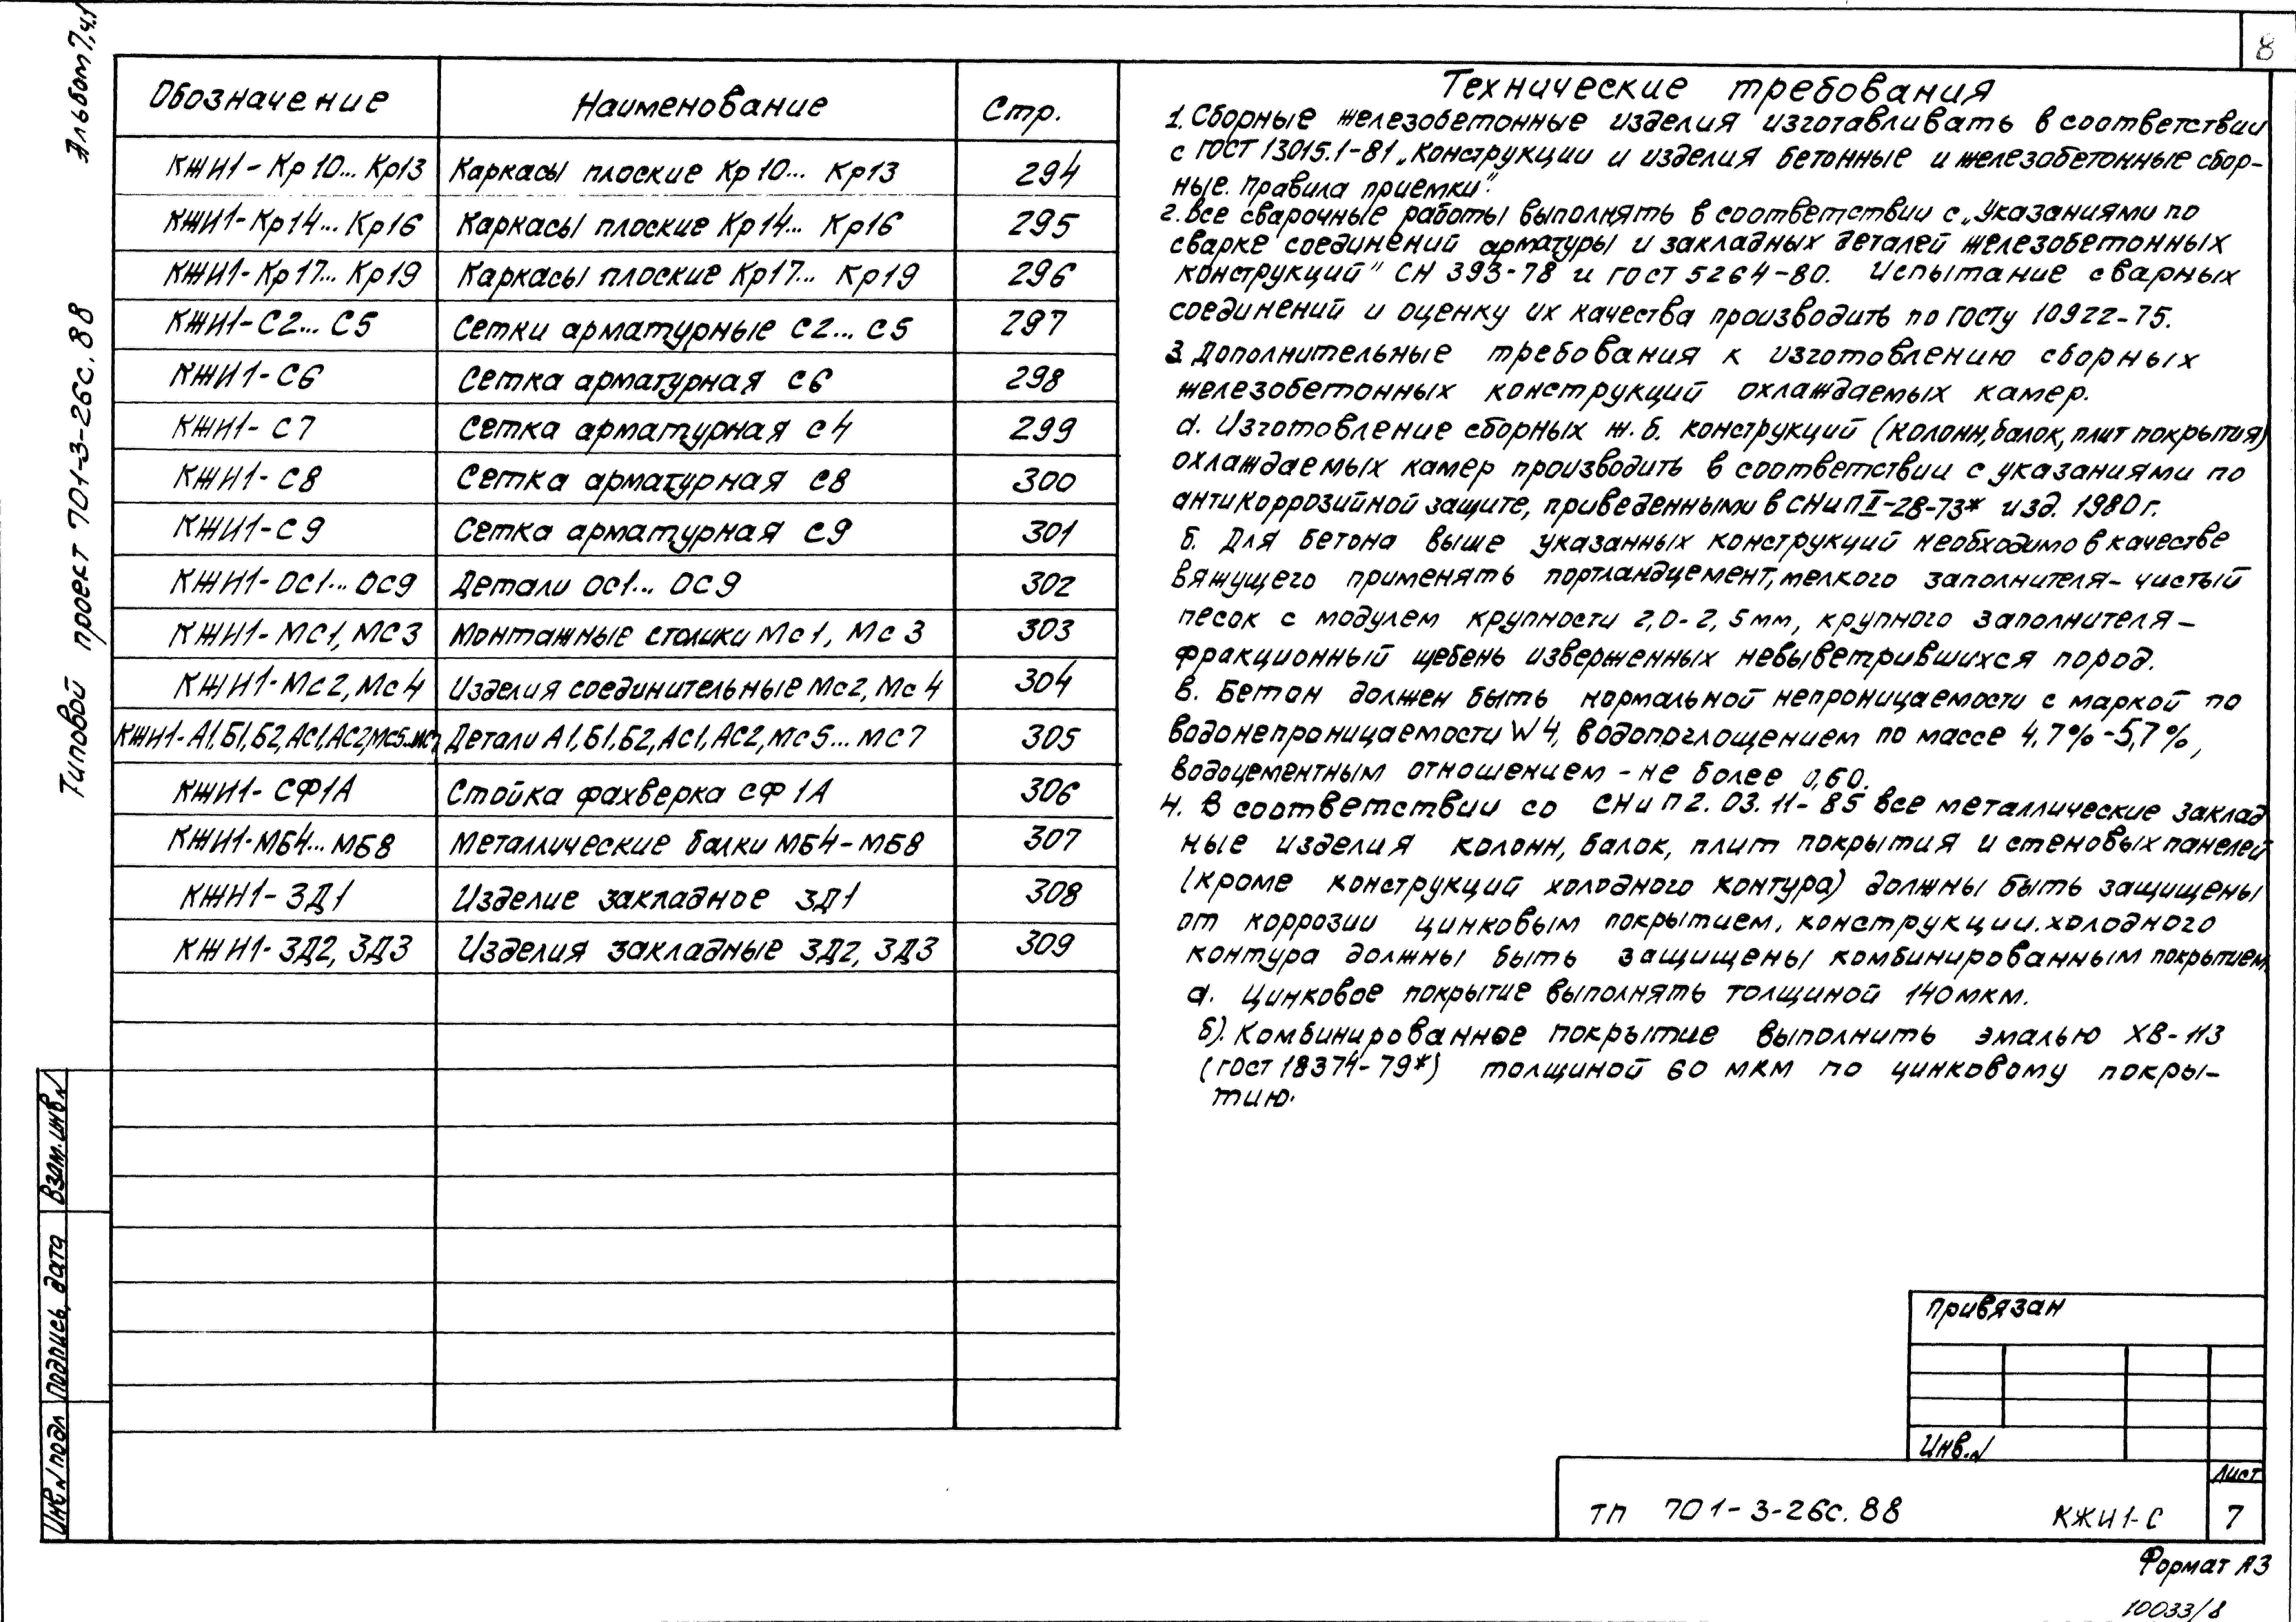 8
Альбом 7, ч.1
Типовой проект 701-3-26с.88
Обозначение Наименование Стр.
КЖИ1-Кр10... Кр13 Каркасы плоские Кр10... Кр13 294
КЖИ1-Кр14... Кр16 Каркасы плоские Кр14... Кр16 295
КЖИ1-Кр17... Кр19 Каркасы плоские Кр17... Кр19 296
КЖИ1-С2... С5 Сетки арматурные С2... С5 297
КЖИ1-С6 Сетка арматурная С6 298
КЖИ1-С7 Сетка арматурная С4 299
КЖИ1-С8 Сетка арматурная С8 300
КЖИ1-С9 Сетка арматурная С9 301
КЖИ1-ОС1... ОС9 Детали ОС1... ОС9 302
КЖИ1-МС1, МС3 Монтажные столики МС1, МС3 303
КЖИ1-МС2, МС4 Изделия соединительные МС2, МС4 304
КЖИ1-А1,Б1,Б2,АС1,АС2,МС5...МС7 Детали А1,Б1,Б2,АС1,АС2,МС5...МС7 305
КЖИ1-СФ1А Стойка фахверка СФ1А 306
КЖИ1-МБ4... МБ8 Металлические балки МБ4-МБ8 307
КЖИ1-ЗД1 Изделие закладное ЗД1 308
КЖИ1-ЗД2, ЗД3 Изделия закладные ЗД2, ЗД3 309
Технические требования
1. Сборные железобетонные изделия изготавливать в соответствии
с ГОСТ 13015.1-81 „Конструкции и изделия бетонные и железобетонные сбор-
ные. Правила приемки".
2. Все сварочные работы выполнять в соответствии с „Указаниями по
сварке соединений арматуры и закладных деталей железобетонных
конструкций" СН 393-78 и ГОСТ 5264-80. Испытание сварных
соединений и оценку их качества производить по ГОСТу 10922-75.
3. Дополнительные требования к изготовлению сборных
железобетонных конструкций охлаждаемых камер.
а. Изготовление сборных ж.б. конструкций (колонн, балок, плит покрытия)
охлаждаемых камер производить в соответствии с указаниями по
антикоррозийной защите, приведенными в СНиП II-28-73* изд. 1980г.
б. Для бетона выше указанных конструкций необходимо в качестве
вяжущего применять портландцемент, мелкого заполнителя- чистый
песок с модулем крупности 2,0-2,5мм, крупного заполнителя-
фракционный щебень изверженных невыветрившихся пород.
в. Бетон должен быть нормальной непроницаемости с маркой по
водонепроницаемости W4, водопоглощением по массе 4,7%-5,7%,
водоцементным отношением - не более 0,60.
4. В соответствии со СНиП 2.03.11-85 все металлические заклад
ные изделия колонн, балок, плит покрытия и стеновых панелей
(кроме конструкций холодного контура) должны быть защищены
от коррозии цинковым покрытием, конструкции холодного
контура должны быть защищены комбинированным покрытием.
а. Цинковое покрытие выполнять толщиной 140мкм.
б). Комбинированное покрытие выполнить эмалью ХВ-113
(ГОСТ 18374-79*) толщиной 60 мкм по цинковому покры-
тию.
Привязан
Инв.N
ТП 701-3-26с.88 КЖИ1-С Лист 7
Формат А3
10033/8
Взам.инв.N
Подпись, дата
Инв.N подл